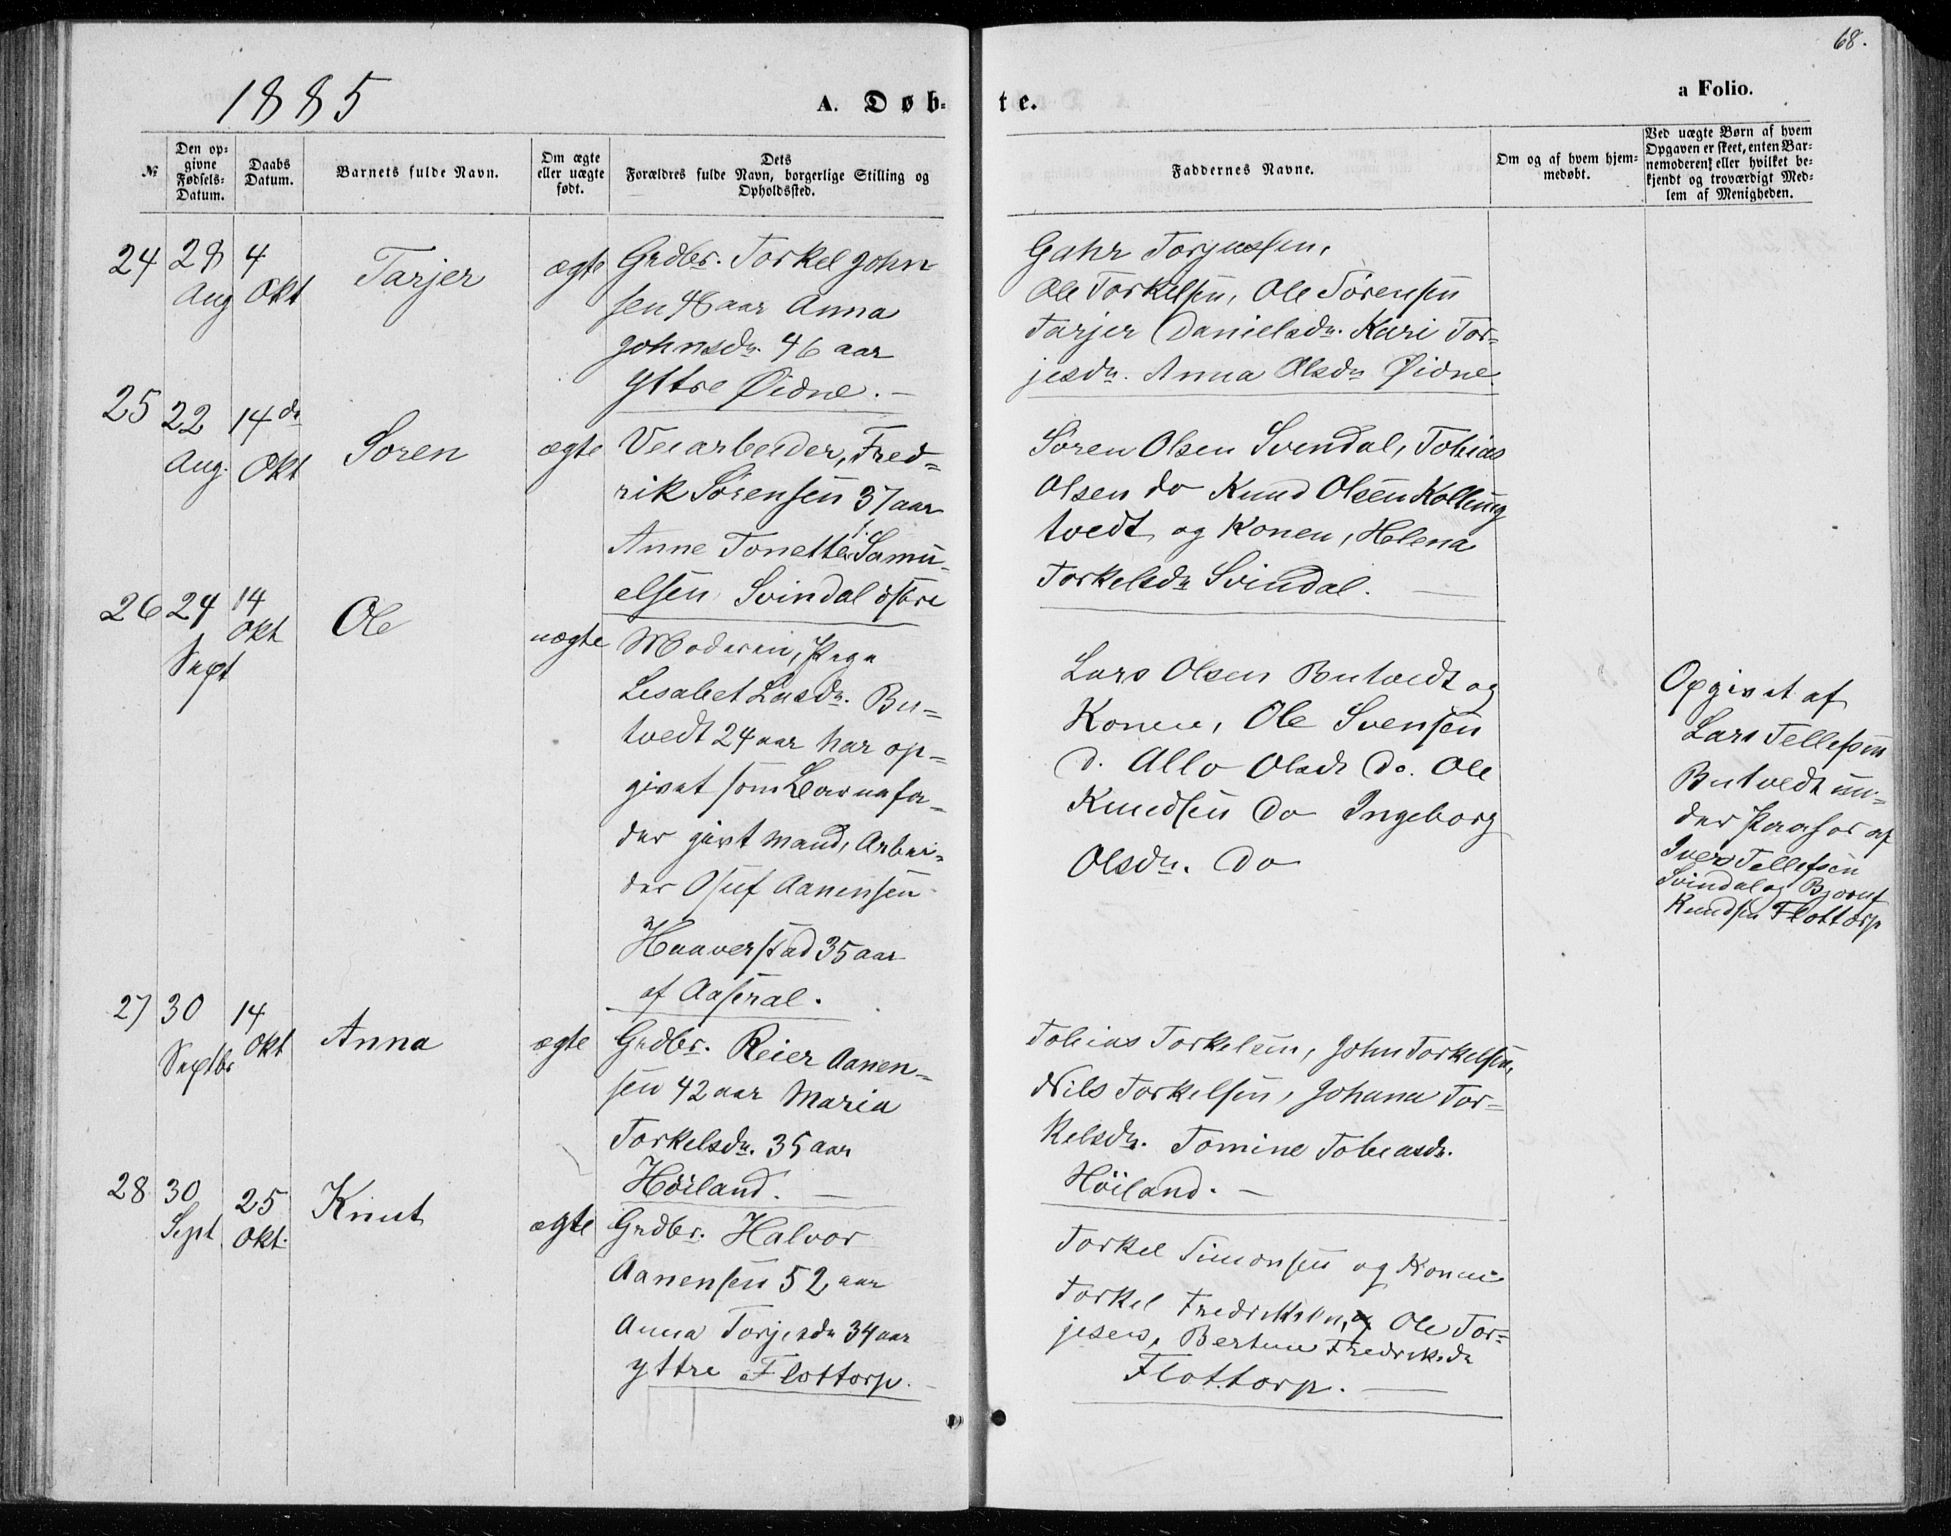 68.
1885
A. Døbte.
a Folio.
№
Den op=
givne
Fødsels=
Datum.
Daabs
Datum.
Barnets fulde Navn.
Om ægte
eller uægte
født.
Dets
Forældres fulde Navn, borgerlige Stilling og
Opholdssted.
Faddernes Navne.
Om og af hvem hjem=
medøbt.
Ved uægte Børn af hvem
Opgaven er skeet, enten Bar=
nemoderen eller hvilket be=
kjendt og troværdigt Med=
lem af Menigheden.
24
28
Aug
4
Okt
Tarjer
ægte
Grdbr. Torkel John
sen 46 aar Anna
Johnsdr. 46 aar
Yttre Øidne. —
Gahr Torjussen,
Ole Torkelsen, Ole Sørensen
Tarjer Danielsdr. Kari Tor=
jesdr. Anna Olsdr Øidne.
25
22
Aug.
14 de
Okt
Soren
ægte
Veiarbeider, Fred=
rik Sørensen 37 aar
Anne Tonette Samu
elsen Svindal østre
Søren Olsen Svendal, Tobias
Olsen do Knud Olsen Kolling
tvedt og Konen, Helena
Torkelsdr Svindal. —
26
24
Sept
14
Okt
Ole
uægte
Moderen, Pige
Lisabet Lasdr. Bu=
tvedt 24 aar har op=
givet som Barnefa=
der givt Mand, Arbei=
der Osuf Aanensen
Haaverstad 35 aar
af Aaseral.
Lars Olsen Butvedt og
Konen, Ole Svensen
d. Allo Olsdr do. Ole
Knudsen do Ingeborg
Olsdr. do
Opgivet af
Lars Tellefsen
Butvedt un=
der Paasyn af
Iver Tellefsen
Svindal og Bjorn
Knudsen Flottorp
27
30
Septbr
14
Okt
Anna
ægte
Grdbr. Reier Aanen=
sen 42 aar Maria
Torkelsdr. 35 aar
Høiland. —
Tobias Torkelsen, John Torkelsen,
Nils Torkelsen, Johana Tor=
kelsdr. Tomine Tobiasdr.
Høiland. —
28
30
Sept
25
Okt.
Knut
ægte
Grdbr. Halvor
Aanensen 52 aar
Anna Torjesdr 34 aar
yttre Flottorp.
Torkel Simonsen og Konen
Torkel Fredriksen, Ole Tor=
jesen, Bertine Fredriksdr
Flottorp. —